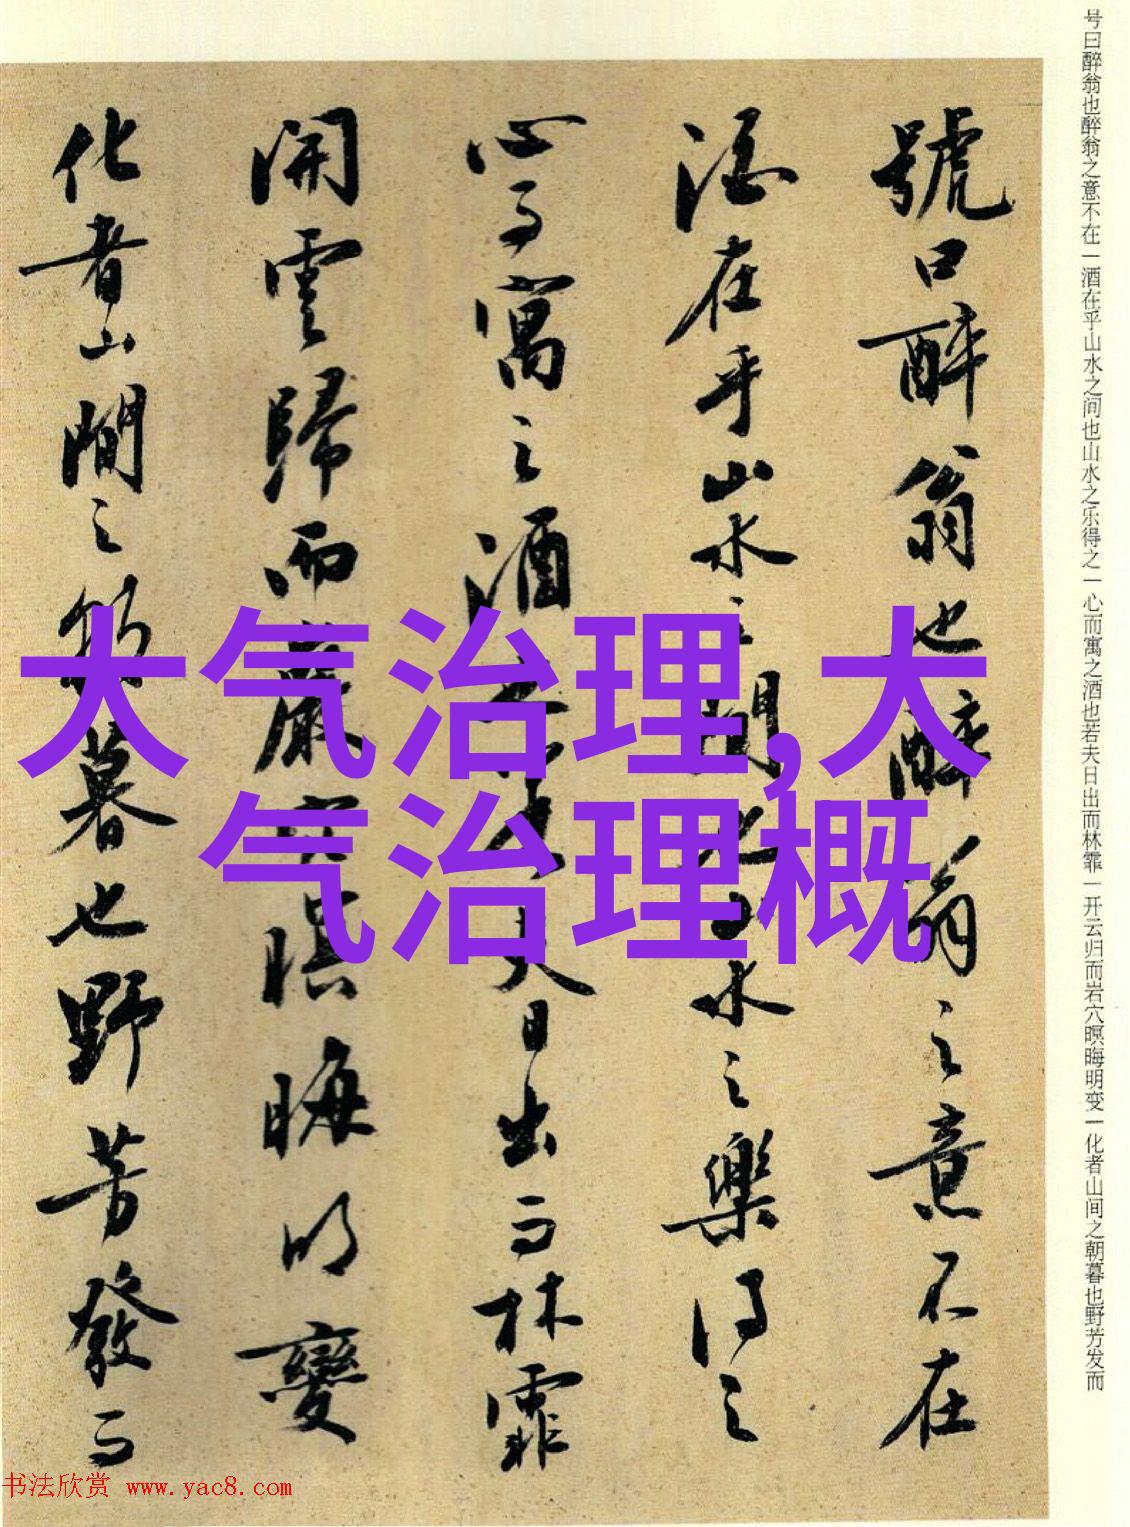 号曰醉翁也醉翁之意不在一酒在乎山水之间也山水之乐得之一心而寓之酒也若夫日出而林霏一开云归而岩穴暝晦明变一化者山间之朝暮也野芳发而
號曰醉翁也醉翁之意不在
酒在乎山水之間也山水之樂得之
心而寓之酒也若夫日出而林霏
開雲歸而巖穴暝晦明變
化者山間之朝暮也野芳發而
大气治理,大
气治理概
书法欣赏 www.yac8.com